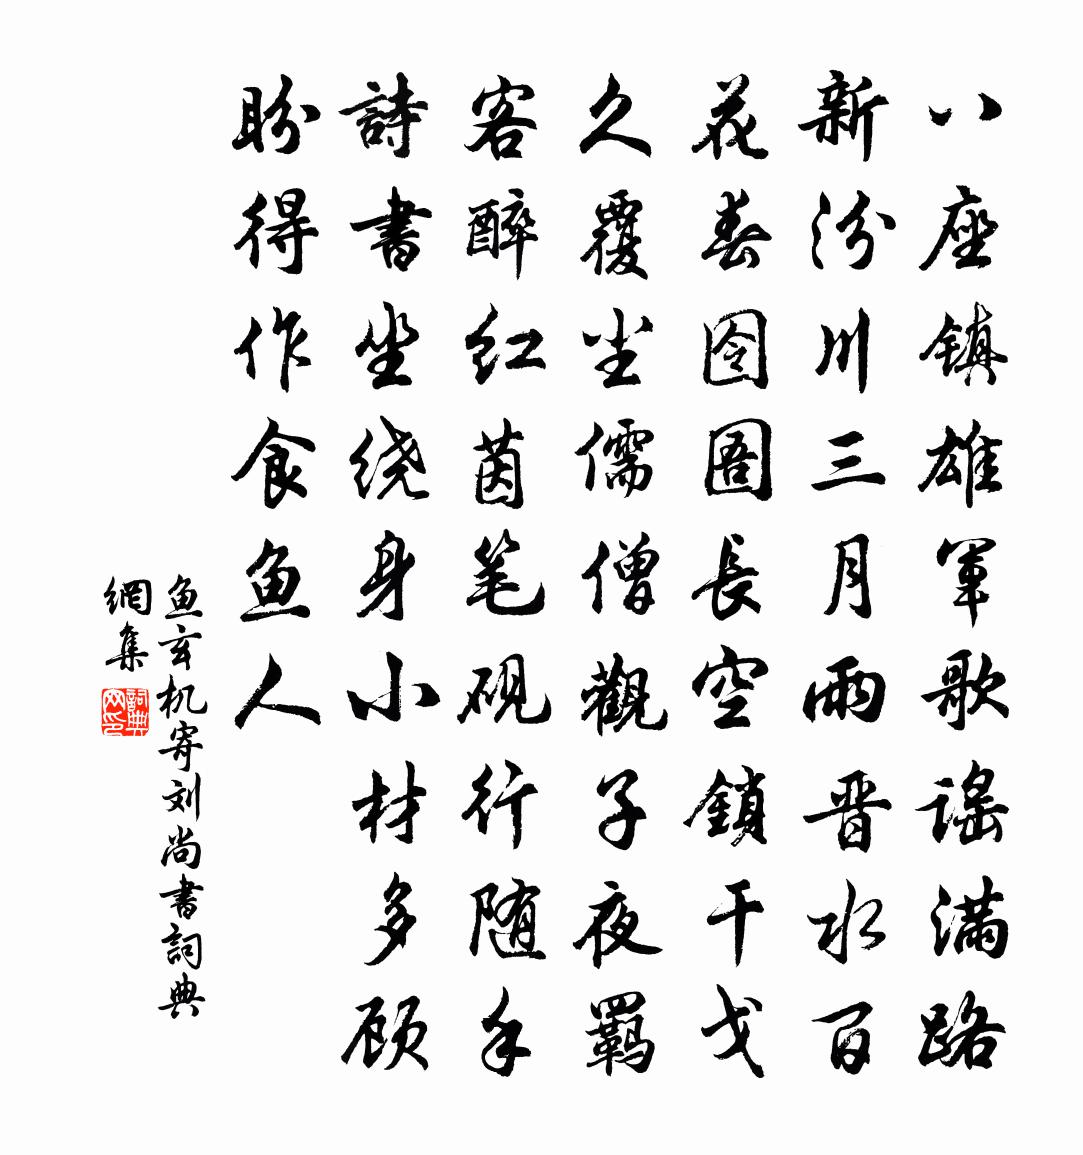 八座镇雄軍歌谣满路
新汾川三月雨晋水百
花春囹圄長空鎖干戈
久覆尘儒僧觀子夜羈
客醉红茵笔砚行随手
詩書坐绕身小材多顾
盼得作食鱼人
鱼玄机寄刘尚書詞典
網集
詞典
网印